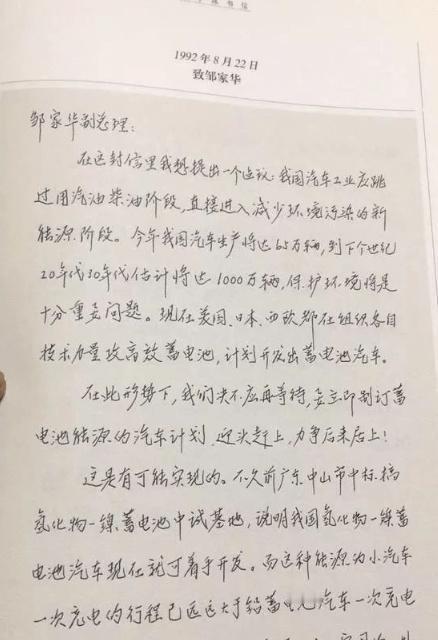 书信
1992年8月22日
致邹家华
邹家华副总理:
在这封信里我想提出一个建议:我国汽车工业应跳
过用汽油柴油阶段,直接进入减少环境污染的新
能源阶段。今年我国汽车生产将达65万辆,到下个世纪
20年代30年代估计将达1000万辆,保护环境将是
十分重要问题。现在美国、日本、西欧都在组织各自
技术力量攻高效蓄电池,计划开发出蓄电池汽车。
在此形势下,我们决不应再等待,要立即制订蓄
电池能源的汽车计划,迎头赶上,力争后来居上!
这是有可能实现的。不久前广东中山市中标,搞
氢化物—镍蓄电池中试基地,说明我国氢化物—镍蓄
电池汽车现在就可着手开发。而这种能源为小汽车
一次充电的行程已远远大于铅蓄电池汽车一次充电